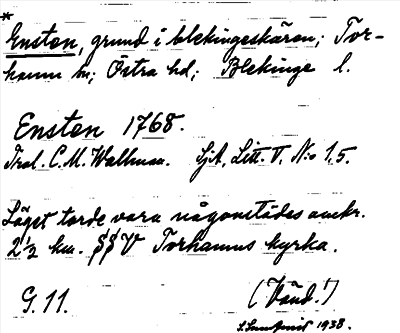 *
Ensten, grund i blekingeskären; Tor-
hamn sn; Östra hd; Blekinge l.
Ensten 1768.
Tral. C. M. Wallman. Sjk, Litt. V. N:o 1,5.
Läget torde vara någonstädes omkr.
2½ km. V Torhamns kyrka.
G. 11. (Vänd!)
1938.